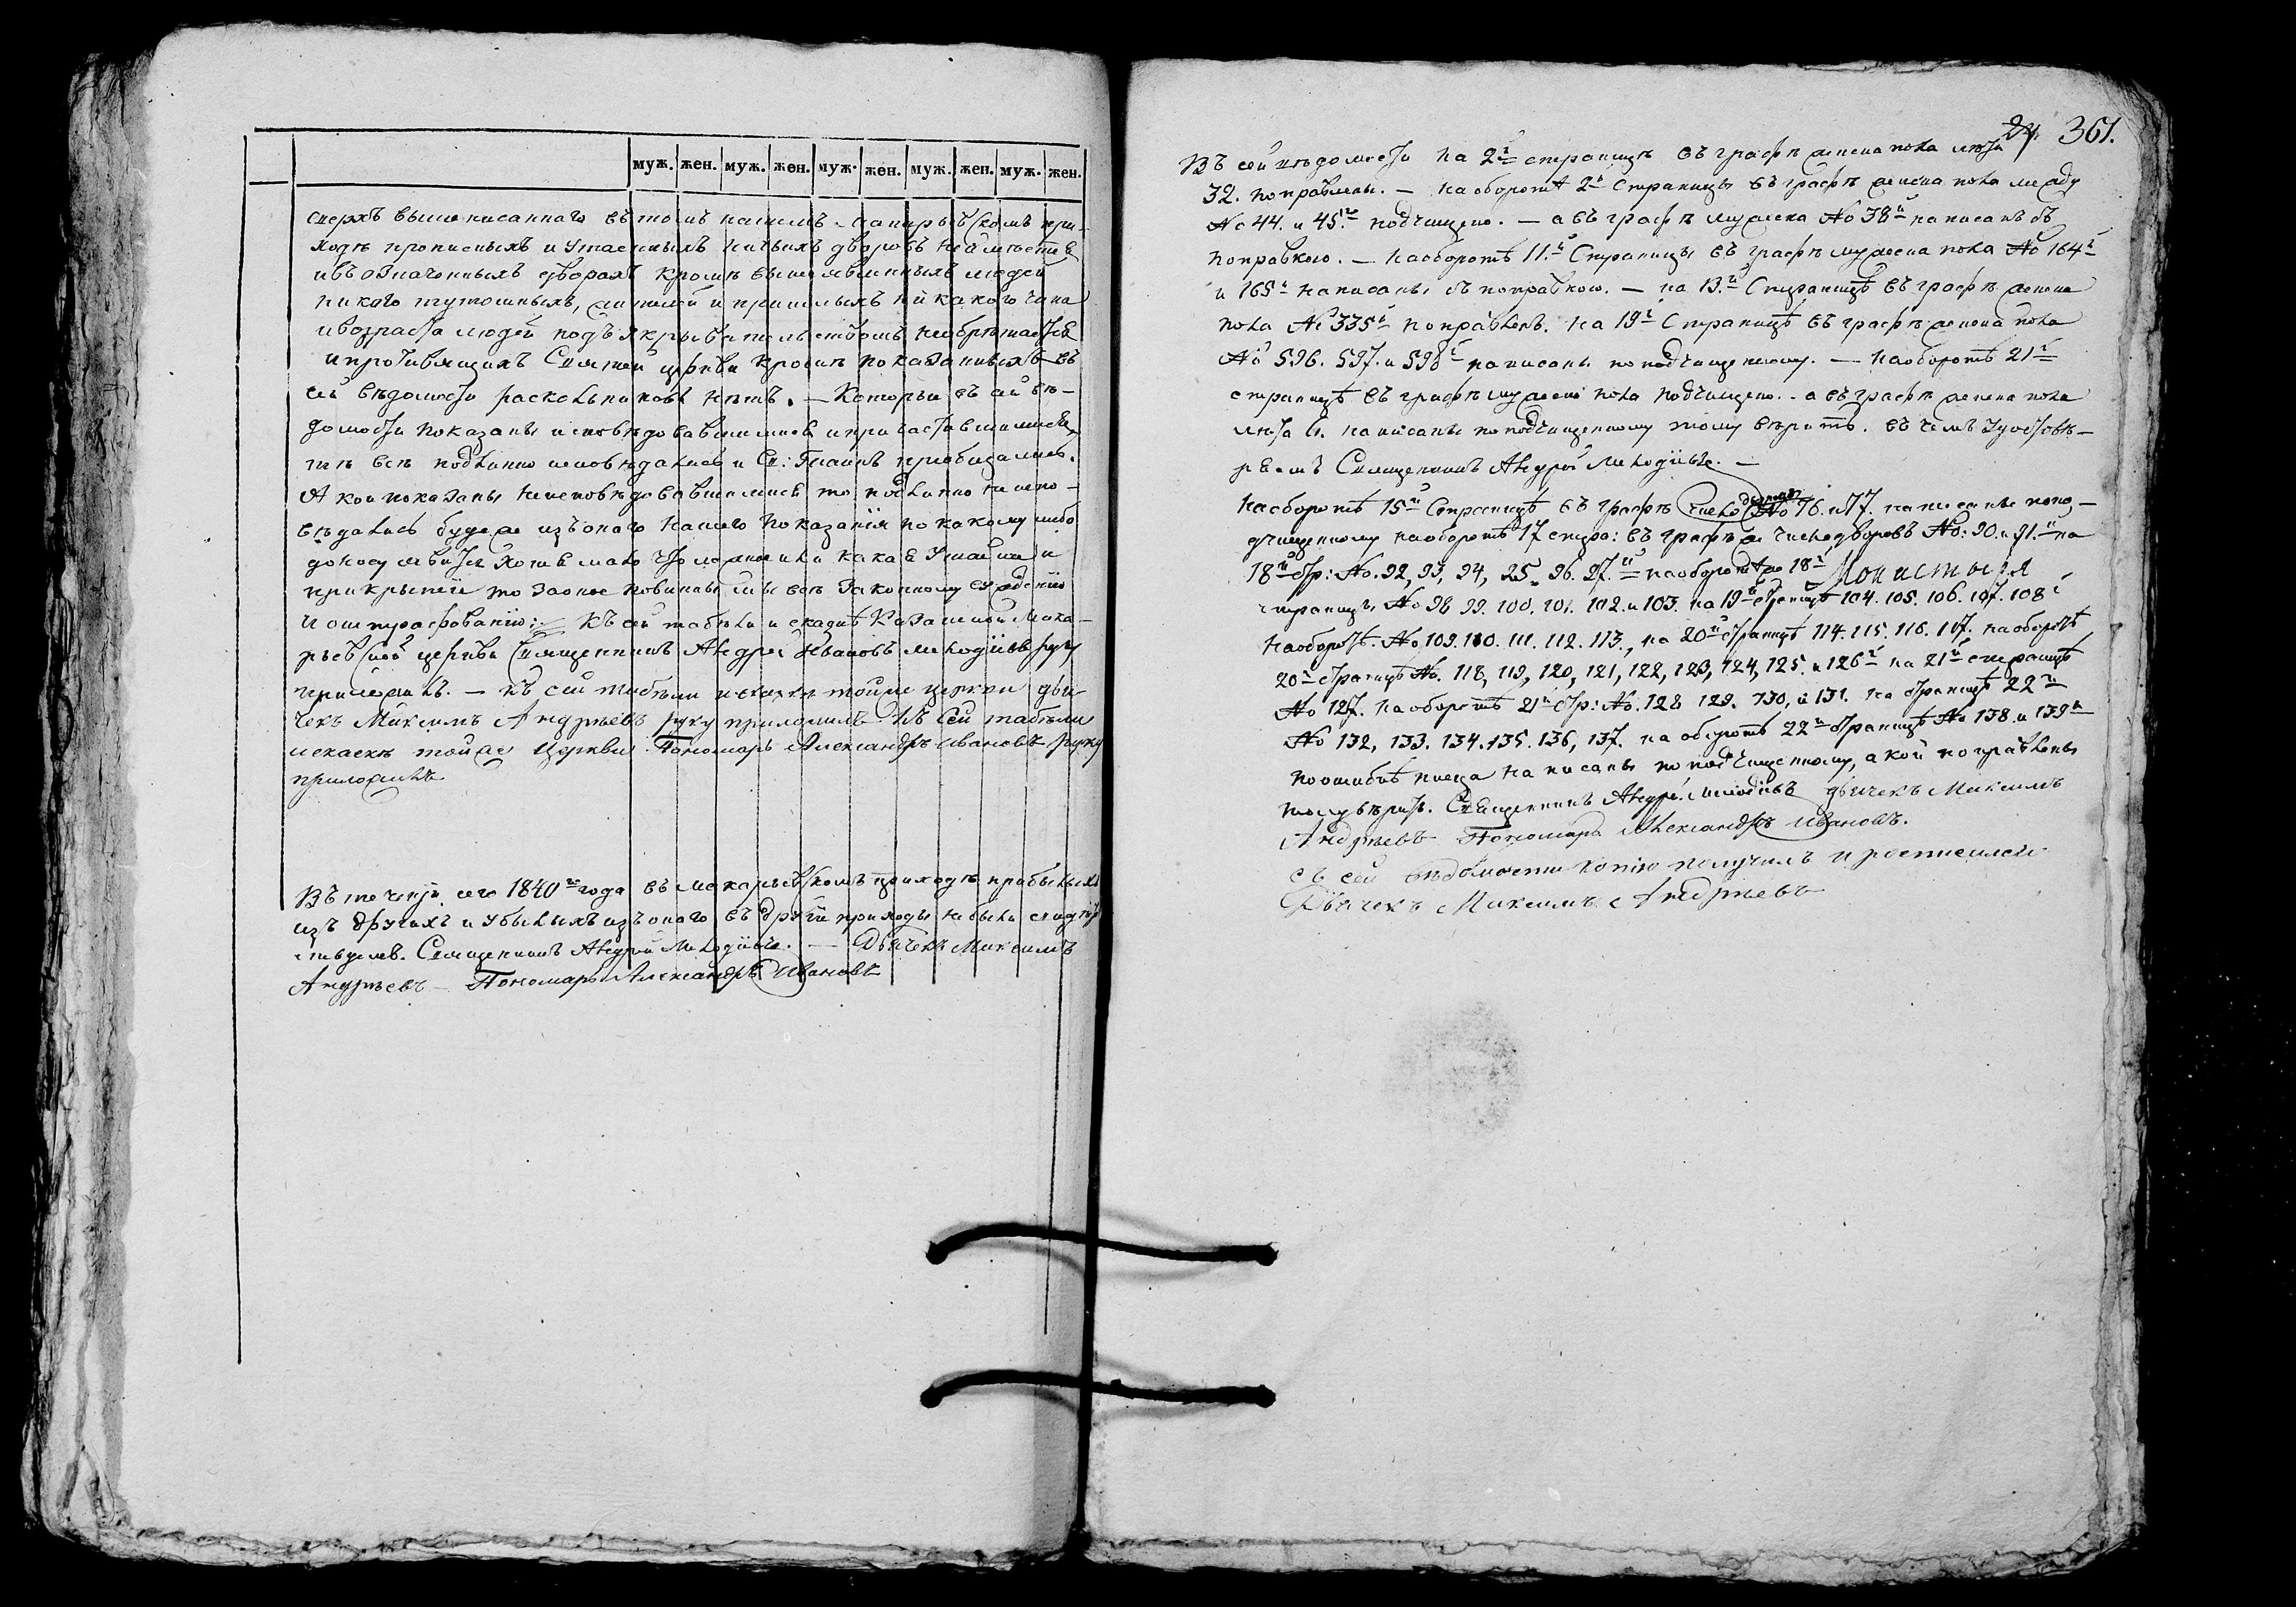 муж. жен. муж. жен. муж. жен. муж. жен. муж. жен.
сверхъ вышеписаннаго въ томъ нашемъ Макарьевскомъ при-
ходѣ прописныхъ и утаенныхъ ничьихъ дворовъ неимѣется
ивъ означенныхъ дворахъ кромѣ вышеявленныхъ людей
никого тутошныхъ, жителей и пришлыхъ никакого чина
ивозраста людей подъ укрывательствомъ необрѣтается
ипротивящихъ Святей церкви кромѣ показанныхъ въ
сей вѣдомости раскольниковъ нѣтъ. — Которыи въ сей вѣ-
домости показаны исповѣдовавшимися ипричастившимися,
тѣ всѣ подлинно исповѣдались и Св: Таинъ приобщались.
А кои показаны неисповѣдовавшимися то подлинно неиспо-
вѣдались будеже изъ онаго нашего показанія по какому либо
доносу явится хотя мало что ложно или какая утайка и
прикрытіе то заоное повинны мы всѣ законному сужденію
и оштрафованію: — Къ сей табели и сказкѣ Мака-
рьевской церкви Священникъ Андрей Ивановъ руку
приложилъ. — къ сей табели искаске тойже церкви дья-
чекъ Максимъ Андрѣевъ руку приложилъ Къ Сей табели
искаске тойже Церкви Пономарь Александръ Ивановъ руку
приложилъ
Въ теченіи сего 1840го года въ Макарьевскомъ приходѣ прибылыхъ
изъ другихъ и убылыхъ изъ онаго въ другіе приходы небыло
Священникъ Андрей — Дьячекъ Максимъ
Андрѣевъ — Пономарь Александръ Ивановъ
24. 361.
Въ сей вѣдомости на 2й страницѣ въ графѣ женска пола лѣта
32. поправлены. — на оборотѣ 2й Страницы въ графѣ женска пола между
№ 44. и 45м подчищено. — а въ графѣ мужеска № 38й написанъ съ
поправкою. — на оборотѣ 11.й Страницы въ графѣ мужеска пола № 164й
и 165й написаны съ поправкою. — на 13.й Страницѣ въ графѣ женска
пола № 335й поправленъ. на 19й Страницѣ въ графѣ женска пола
№ 596. 597. и 598й написаны по подчищенному. — на оборотѣ 21й
страницѣ въ графѣ мужеска пола подчищено. - а въ графѣ женска пола
лѣта написаны по подчищенному тому вѣрить. въ чемъ удостовѣ-
ряемъ Священникъ Андрей —
на оборотѣ 15й Страницѣ въ графѣ число дворовъ № 76. и 77. написаны попо-
дчищенному на оборотѣ 17 стра: въ графѣ число дворовъ №: 90. и 91.й на
18й стр: №. 92, 93, 94, 95. 96. 97.й на оборотѣ 18й
страницы № 98 99. 100. 101. 102. и 103. на 19й страницѣ 104. 105. 106. 107. 108й
на оборотѣ. № 109. 110. 111. 112. 113., на 20й страницѣ 114. 115. 116. 117. на оборотѣ
20й страницѣ №. 118, 119, 120, 121, 122, 123, 124, 125. и 126й на 21й страницѣ
№ 127. на оборотѣ 21й стр: №. 128 129. 130, и 131. на страницѣ 22й
№ 132, 133. 134. 135. 136, 137. на оборотѣ 22й страницѣ № 138. и 139й
по ошибкѣ писца написаны по подчищенному, а кой поправлены
тому вѣрить. Священникъ Андрей дьячекъ Максимъ
Андрѣевъ Пономарь Александръ Ивановъ.
съ сей вѣдомости копію получилъ и росписался
Дьячекъ Максимъ Андрѣевъ